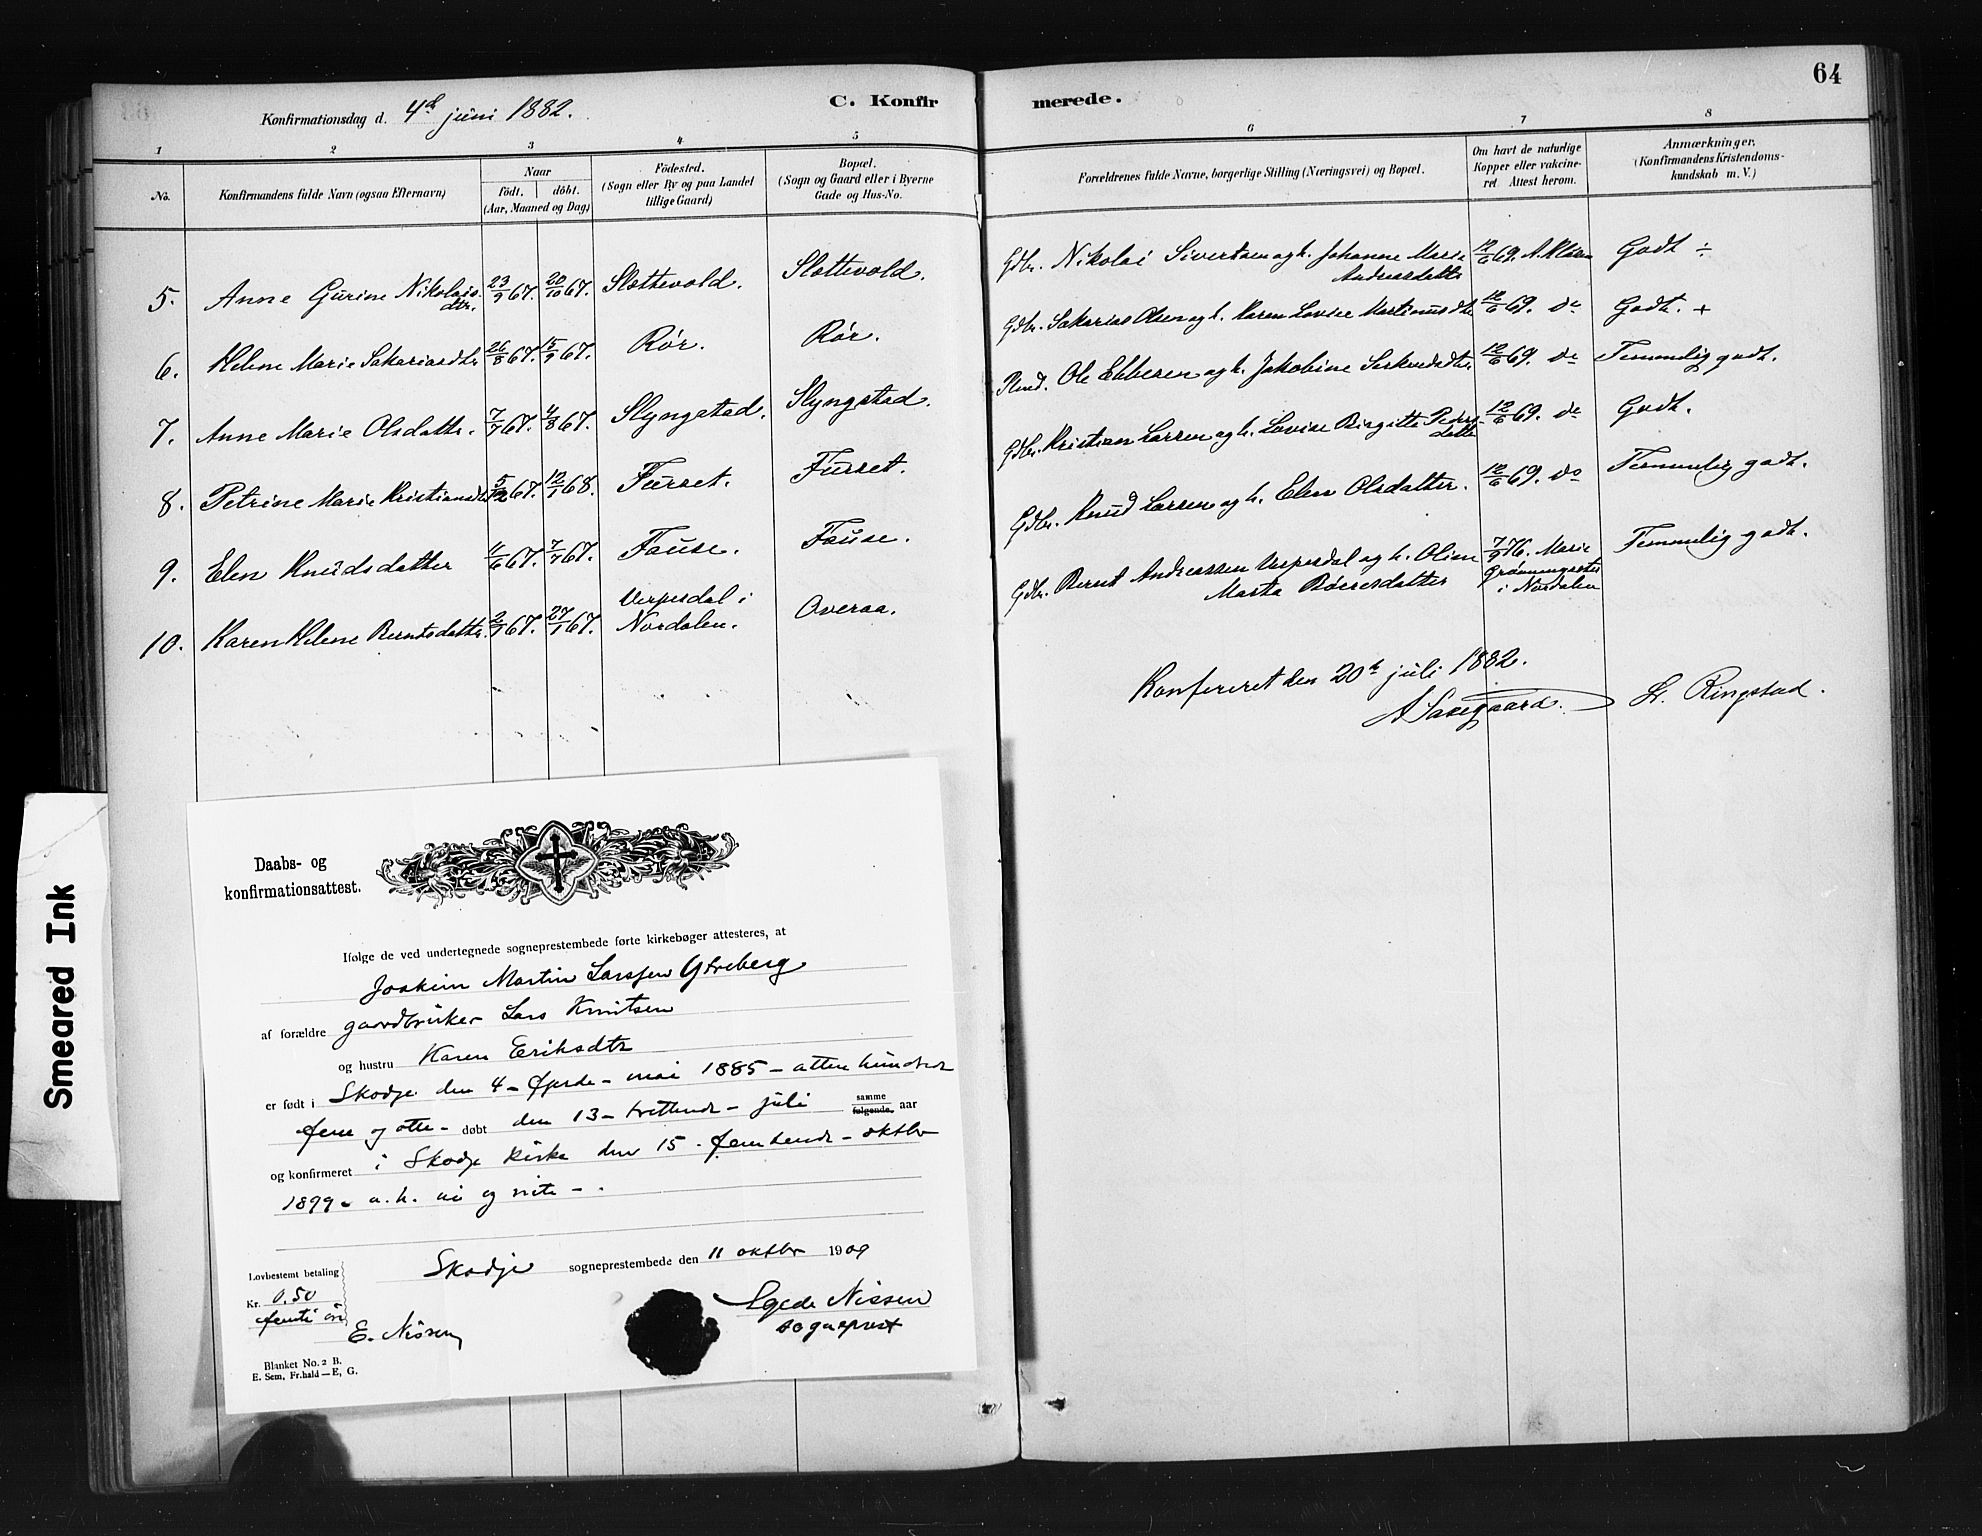 64
C. Konfirmerede.
Konfirmationsdag d. 4de juni 1882.
1 2 3 4 5 6 7 8
No. Konfirmandens fulde Navn (ogsaa Efternavn) Naar født. døbt. (Aar, Maaned og Dag) Födested. (Sogn eller By og paa Landet tillige Gaard) Bopæl. (Sogn og Gaard eller i Byerne Gade og Hus-No. Forældrenes fulde Navne, borgerlige Stilling (Næringsvei) og Bopæl. Om havt de naturlige Kopper eller vakcineret. Attest herom. Anmærkninger. (Konfirmandens Kristendomskundskab m. V.)
5. Anne Gurine Nikolaisdtr. 23/9 67. 20/10 67. Slottevold. Slottevold. Gdbr. Nikolai Sivertsen og h. Johanne Marie Andreasdatter 12/6 69. A. Kløven Godt ÷
6. Helene Marie Sakariasdtr 26/8 67. 15/9 67. Rør. Rør. Gdbr. Sakarias Olsen og h. Karen Lovise Martinusdtr 12/6 69. do Godt. +
7. Anne Marie Olsdattr. 7/7 67. 4/8 67. Slyngstad. Slyngstad. Ole Ebbesen og h. Jakobine 12/6 69. do Temmelig godt.
8. Petrine Marie Kristiansdtr 5/12 67. 12/1 68. Furset. Furset. Gdbr. Kristian Larsen og h. Lovise Birgitte Pedersdatter 12/6 69. do Godt.
9. Elen Knudsdatter 11/6 67. 7/7 67. Fause. Fause. Gdbr. Knud Larsen og h. Elen Olsdatter. 12/6 69. do Temmelig godt.
10. Karen Helene Berntsdattr. 2/1 67. 27/1 67. Verpesdal i Nordalen. Overaa. Gdbr. Bernt Andreassen Verpesdal og h. Oline Marta Røeresdatter 7/9 76. Marie Grønningsæter i Nordalen Temmelig godt.
Konfereret den 20de juli 1882.
A Saxegaard. L. Ringstad.
Smeared Ink
Daabs- og
konfirmationsattest.
Ifølge de ved undertegnede sogneprestembede førte kirkebøger attesteres, at
Joakim Martin Larssen Ytreberg
af forældre gaardbruker Lars Knutsen
og hustru Karen Eriksdtr
er født i Skodje den 4 - fjerde - mai 1885 - atten hundrede
fem og otti - døbt den 13 - trettende - juli samme følgende. aar
og konfirmeret i Skodje kirke den 15 - femtende - oktbr
1899 - a.h. ni og niti - .
Skodje sogneprestembede den 11 oktbr 1909
Lovbestemt betaling
Kr. 0.50
femti øre
E. Nissen
Egede Nissen
sogneprest
Blanket No. 2 B.
E. Sem, Fr.hald — E, G.